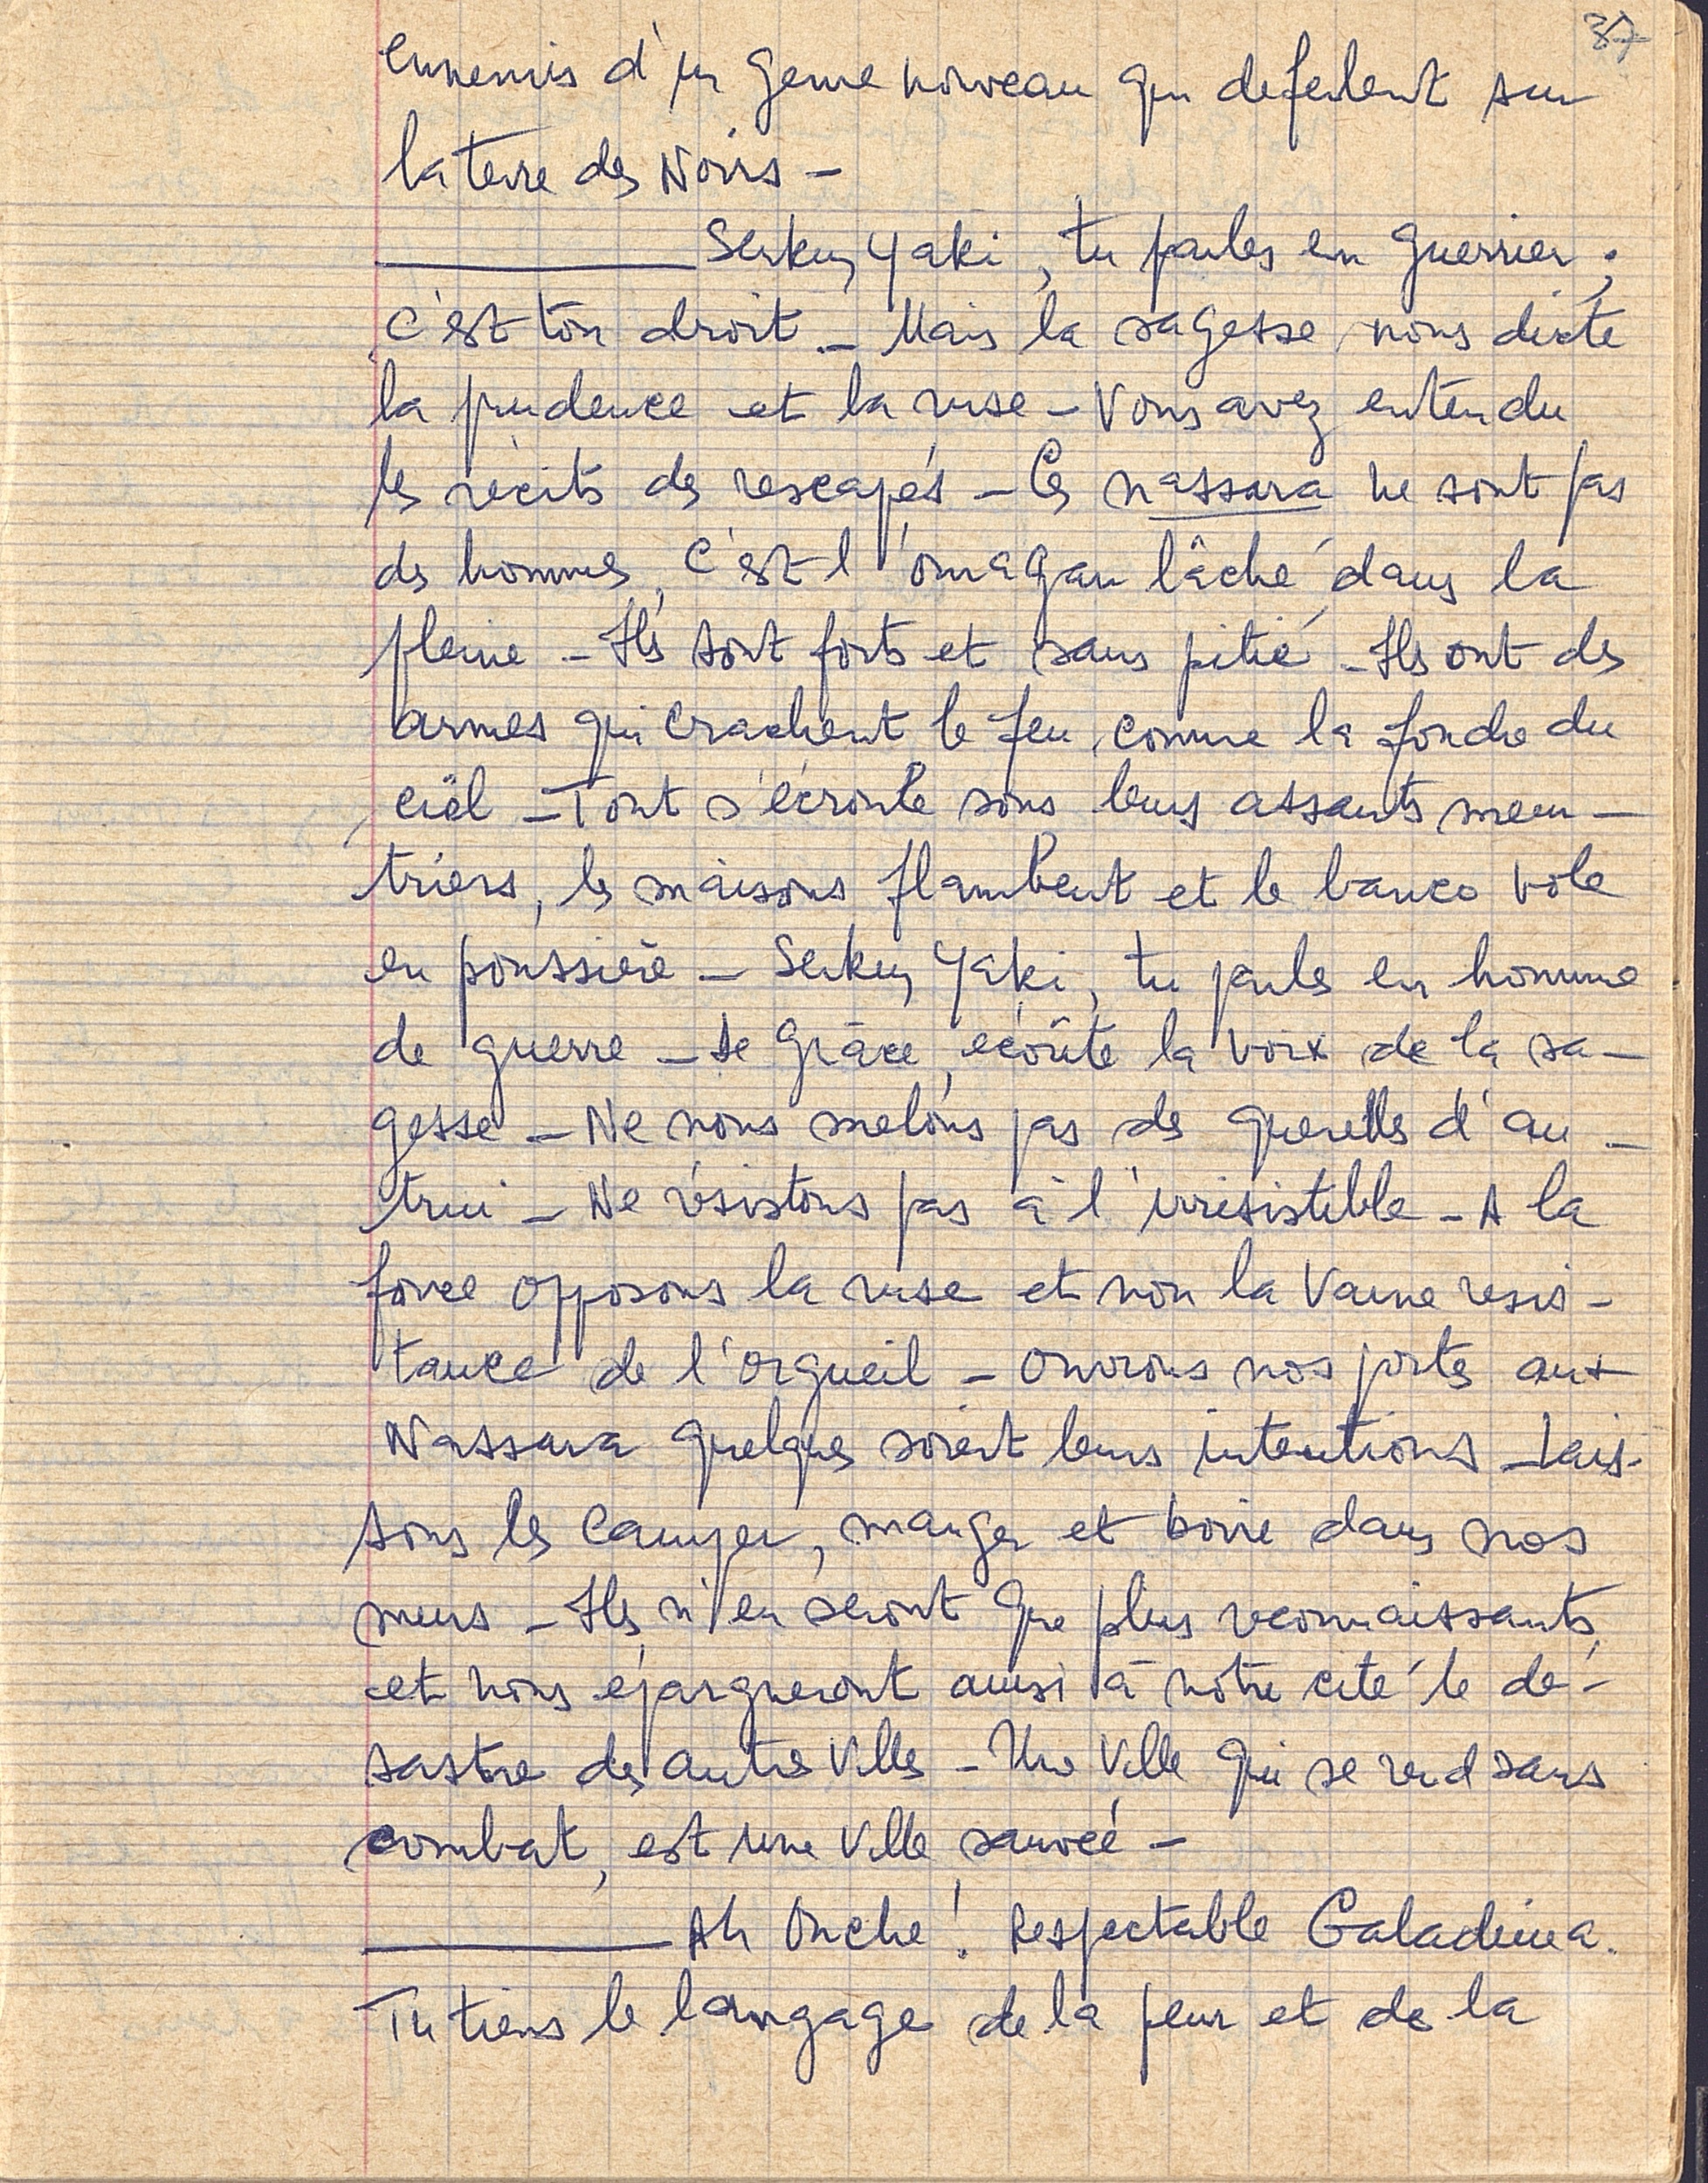 37
ennemis d'un genre nouveau qui deferlent sur
la terre des Noirs –
Serkin Yaki, tu parles en guerrier ;
c'est ton droit – Mais la sagesse nous dicte
la prudence et la ruse – Vous avez entendu
les récits des rescapés – Ces nassara ne sont pas
des hommes, c'est l'ouragan lâché dans la
pleine – Ils sont forts et sans pitié – Ils ont des
armes qui crachent le feu comme la foudre du
ciel – Tout s'écroule sous leurs assauts meur-
triers, les maisons flambent et le banco vole
en poussière – Serkin Yaki, tu parles en homme
de guerre – De grâce, écoute la voix de la sa-
gesse – Ne nous melons pas des querelles d'au-
trui – Ne résistons pas à l'irrésistible – A la
force opposons la ruse et non la vaine resis-
tance de l'orgueil – Ouvrons nos portes aux
Nassara quelques soient leurs intentions – Lais-
sons les camper, manger et boire dans nos
murs – Ils n'en seront que plus reconnaissants,
et nous épargneront ainsi à notre cité le dé-
sastre des autres villes – Une ville qui se rend sans
combat, est une ville sauvée –
Ah Ouche ! Respectable Galadima.
Tu tiens le langage de la peur et de la